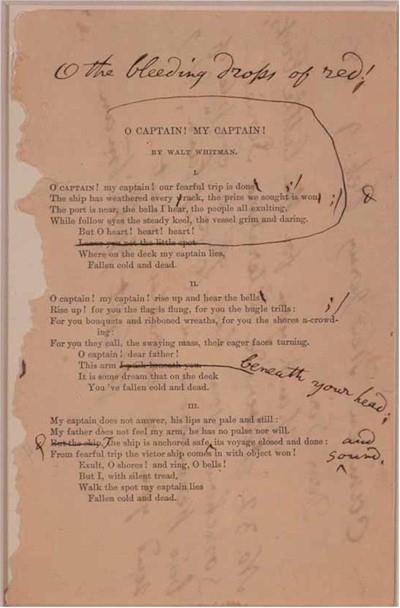 O the bleeding drops of red!
O CAPTAIN! MY CAPTAIN!
BY WALT WHITMAN.
I.
O CAPTAIN! my captain! our fearful trip is done
The ship has weathered every rack, the prize we sought is won
The port is near, the bells I hear, the people all exulting,
While follow eyes the steady keel, the vessel grim and daring.
But O heart! heart! heart!
Leave you not the little spot
Where on the deck my captain lies,
Fallen cold and dead.
II.
O captain! my captain! rise up and hear the bells
Rise up! for you the flag is flung, for you the bugle trills:
For you bouquets and ribboned wreaths, for you the shores a-crowd-
ing:
For you they call, the swaying mass, their eager faces turning.
O captain! dear father!
This arm I push beneath you
beneath your head;
It is some dream that on the deck
You 've fallen cold and dead.
III.
My captain does not answer, his lips are pale and still:
My father does not feel my arm, he has no pulse nor will.
But the ship, The ship is anchored safe, its voyage closed and done: and
sound,
From fearful trip the victor ship comes in with object won!
Exult, O shores! and ring, O bells!
But I, with silent tread,
Walk the spot my captain lies
Fallen cold and dead.